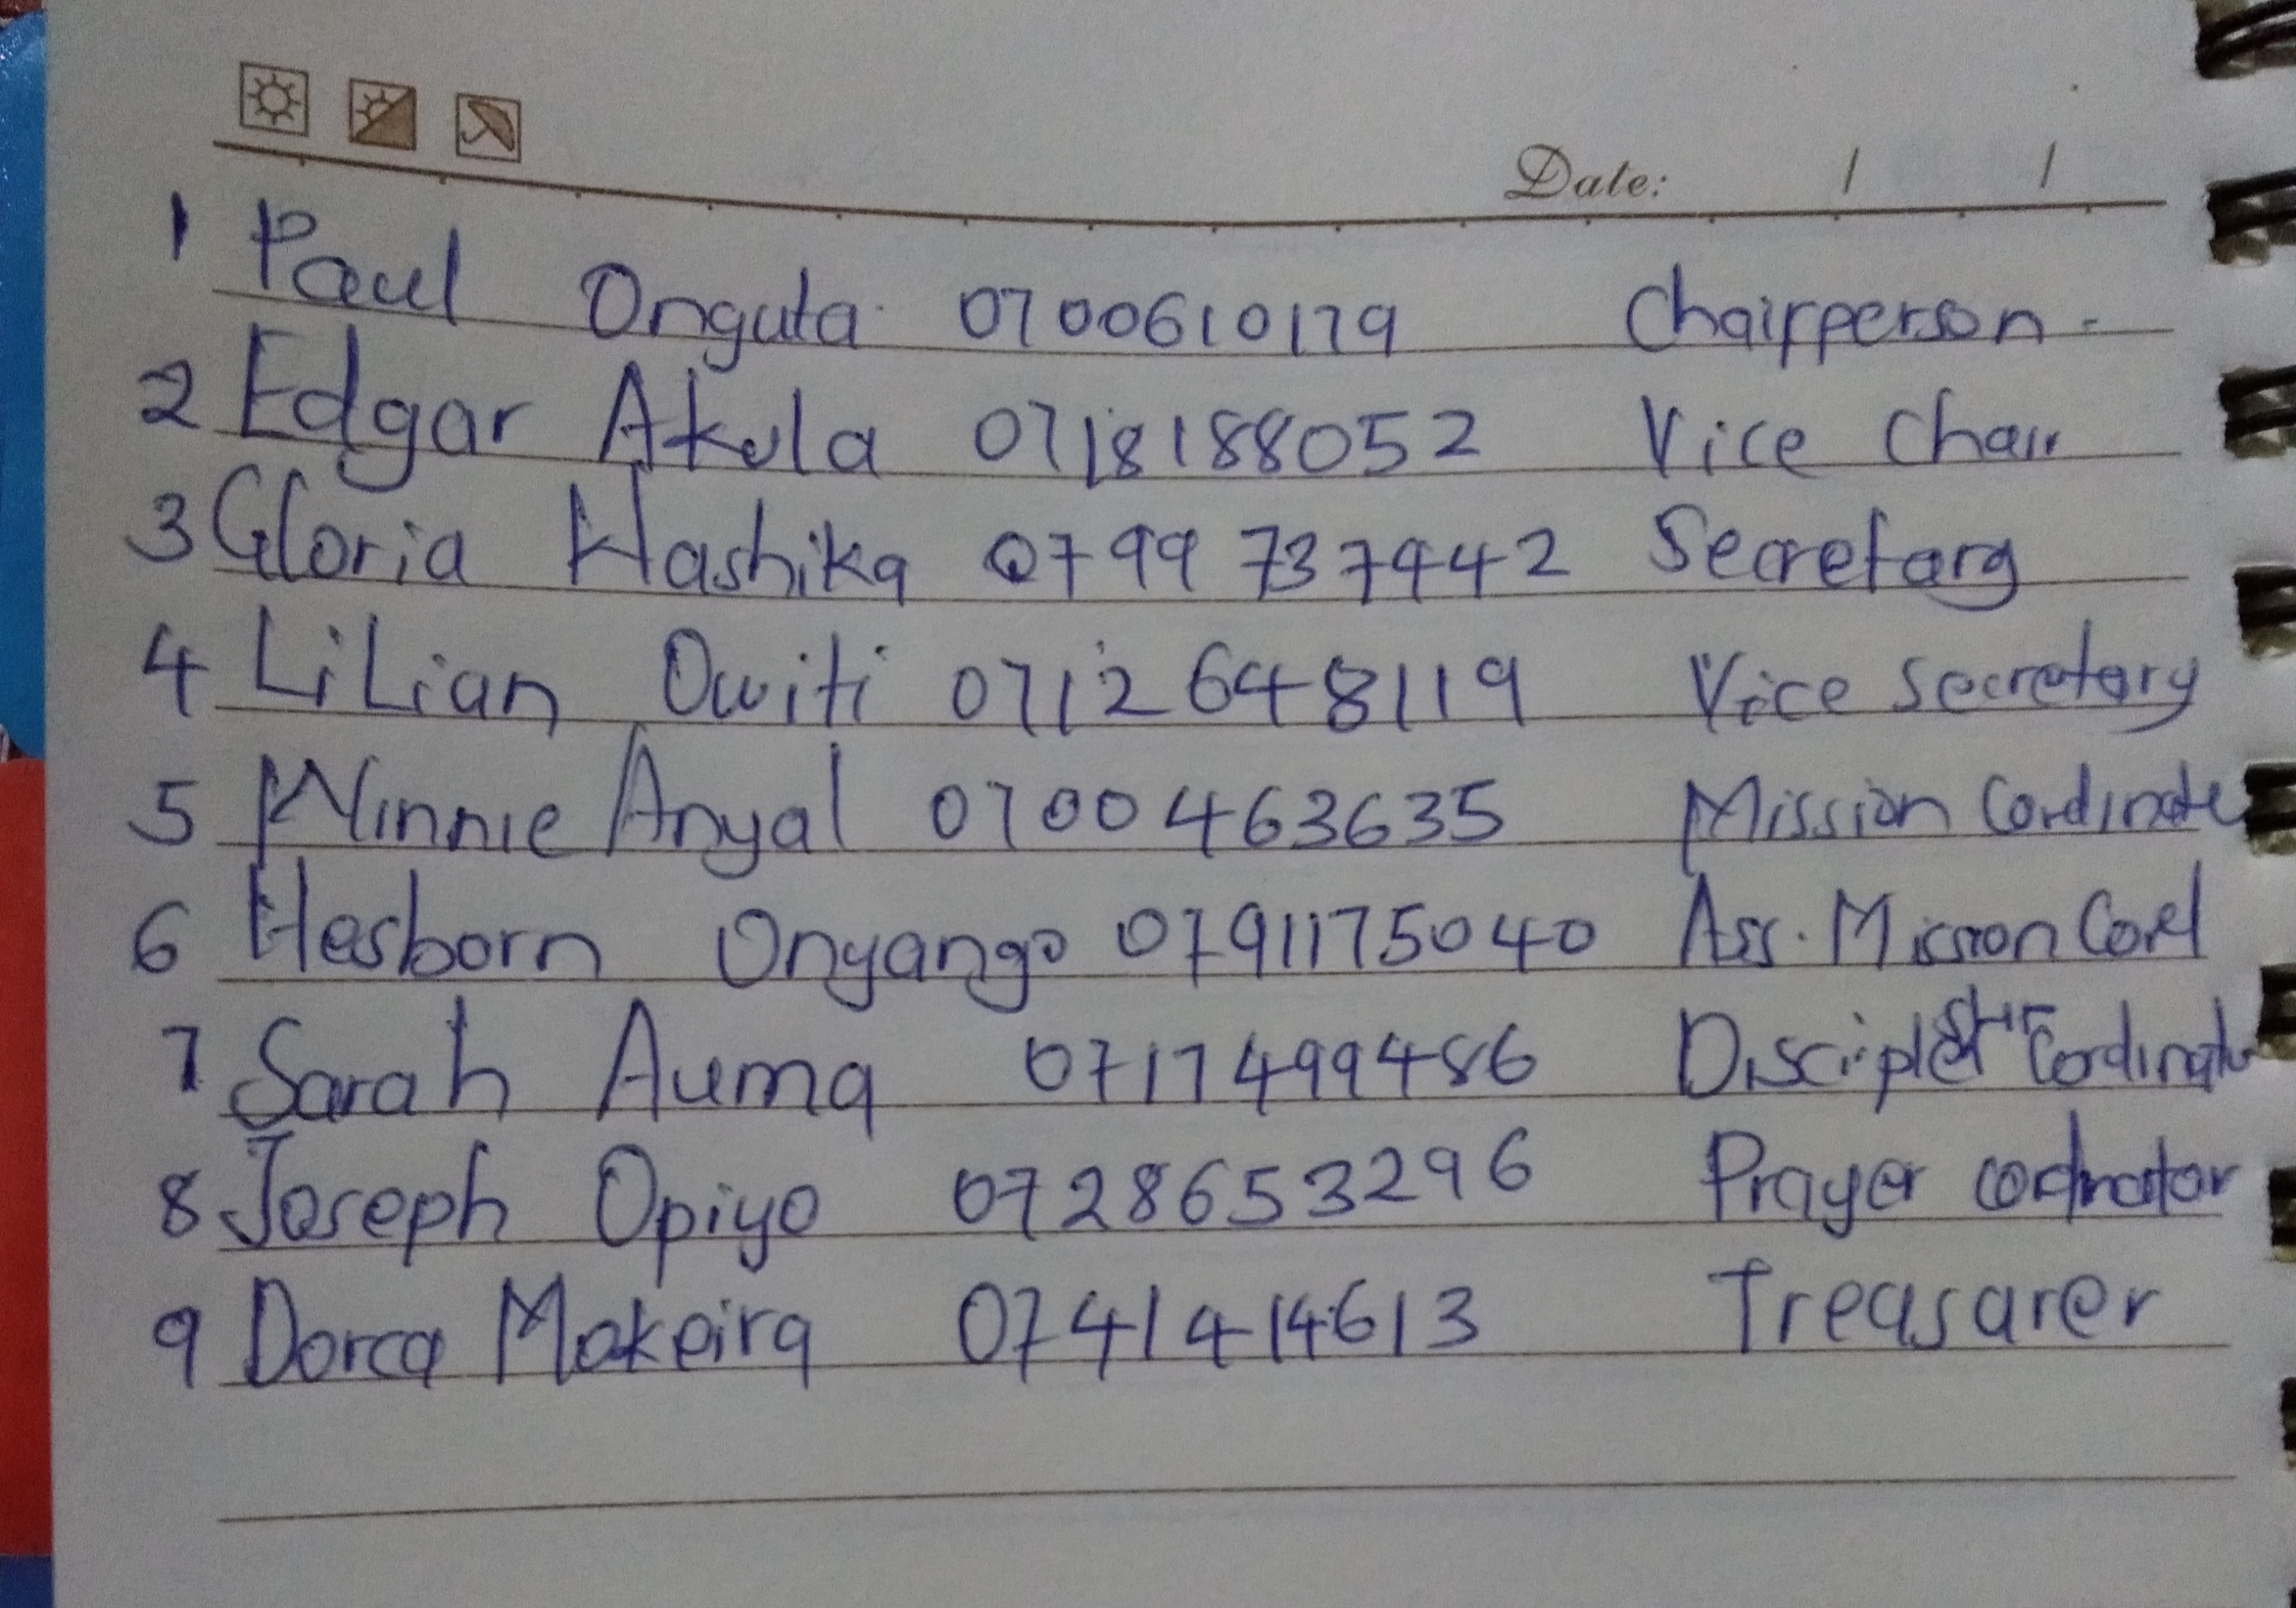 Date: / /
1 Paul Onguta 0700610179 Chairpperson
2 Edgar Akula 0718188052 Vice Chair
3 Gloria Hashika 0799 737942 Secretary
4 LiLian Owiti 0712648119 Vice Secretary
5 Winnie Anyal 0700463635 Mission Cordinate
6 Hesborn Onyango 0791175040 Ass. Mission Cord
7 Sarah Auma 0717499486 Cordinator
8 Joseph Opiyo 0728653296 Prayer
9 Dorca Mokeira 0741414613 Treasarer